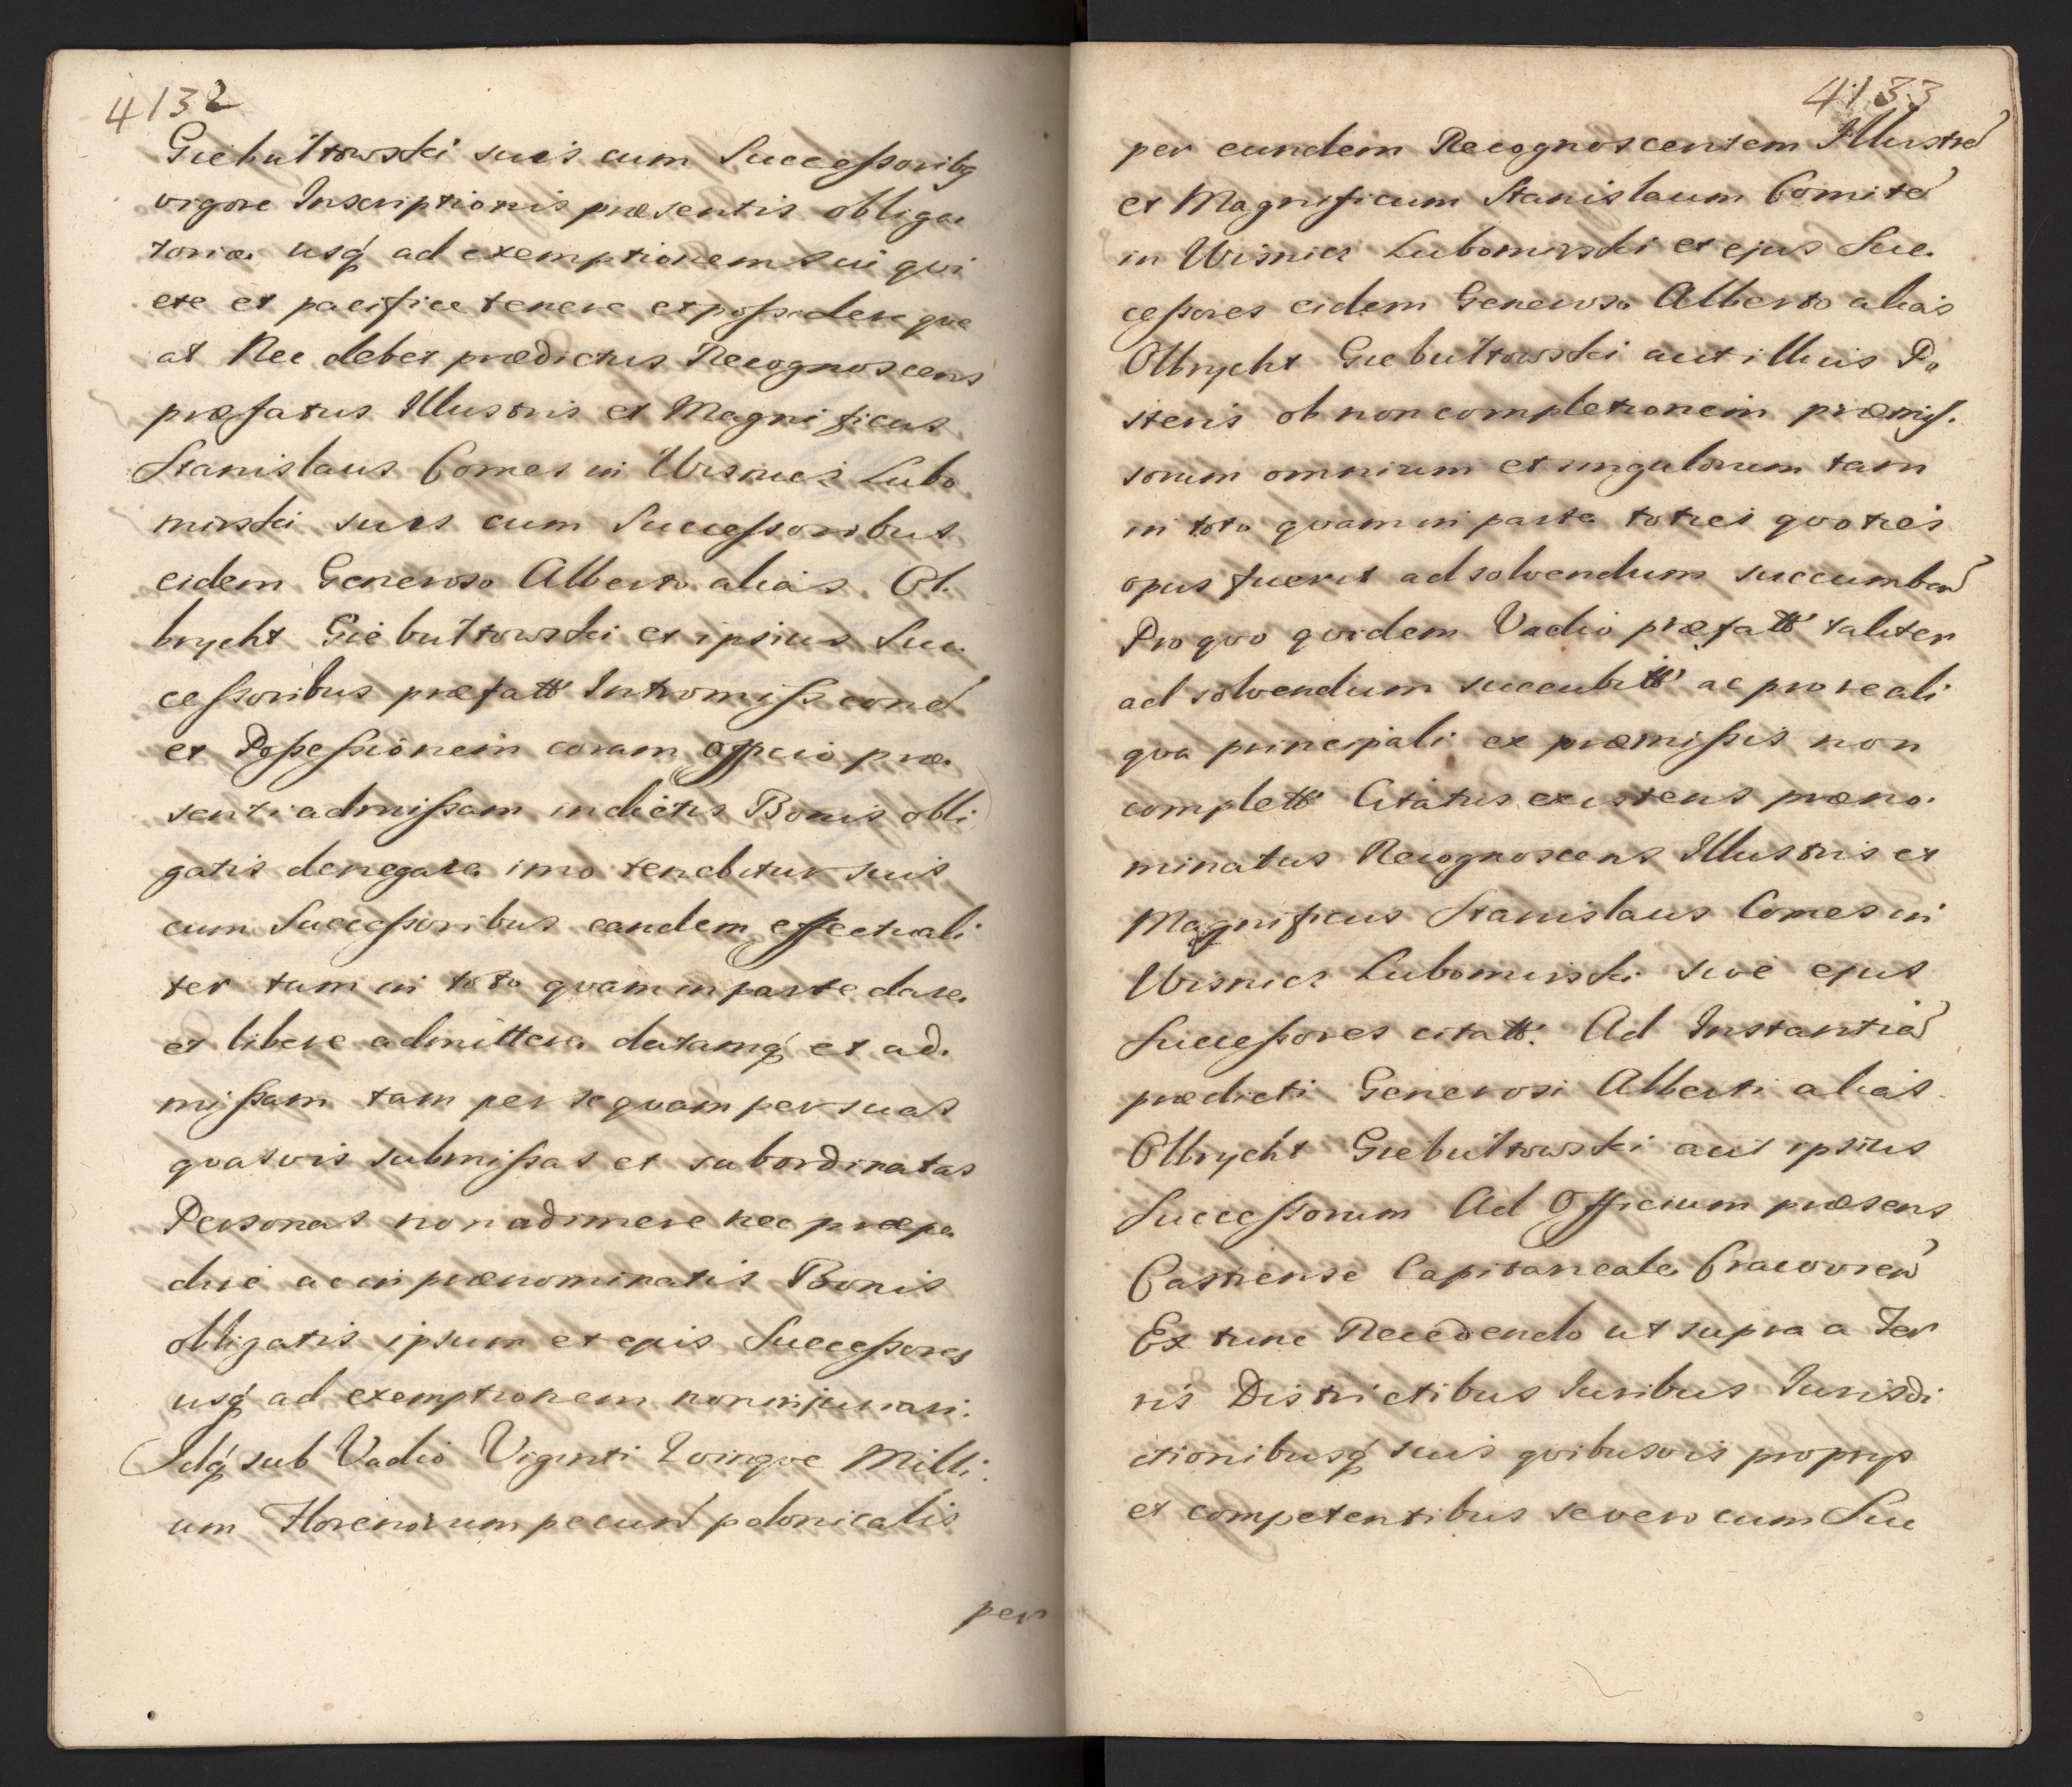 4132
Giebułtowski suis cum Successoribq
vigore Inscriptionis præsentis obliga
toriæ usq́ ad exemptionem sui qvi
ete et pacifice tenere et possidere qve
at Nec debet prædictus Recognoscens
præfatus Illustris et Magnificus
Stanislaus Comes in Wisnicz Lubo
mirski suis cum Successoribus
eidem Generoso Alberto alias Ol.
brycht Giebułtowski et ipsius Suc
cessoribus præfatt Intromissionē
et Possessionem coram Officio præ
senti admissam in dictis Bonis obli
gatis denegare imo tenebitur suis
cum Successoribus eandem effectuali
ter tam in toto qvam in parte dare
et libere admittere datamq́ et ad.
missam tam per se qvam per suas
qvasvis submissas et subordinatas
Personas non adimere nec præpe
dire ac in prænominatis Bonis
obligatis ipsum et ejus Successores
usq́ ad exemptionem non injuriari.
Idq́ sub Vadio Viginti Qvinqve Milli
um Florenorum pecun polonicalis
per
4133
per eundem Recognoscentem Illustre
et Magnificum Stanislaum Comite
in Wisnicz Lubomirski et ejus Suc
cessores eidem Generoso Alberto alias
Olbrycht Giebułtowski aut illius Po
steris ob non completionem præmis.
sorum omnium et singulorum tam
in toto qvam in parte toties qvoties
opus fuerit ad solvendum succumben
Pro qvo qvidem Vadio præfatt taliter
ad solvendum succubitt ac pro re ali
qva principali ex præmissis non
complett Citatus existens præno.
minatus Recognoscens Illustris et
Magnificus Stanislaus Comes in
Wisnicz Lubomirski sive ejus
Successores citatt. Ad Instantia
prædicti Generosi Alberti alias
Olbrycht Giebułtowski aut ipsius
Successorum Ad Officium præsens
Castrense Capitaneale Cracovien
Ex tunc Recedendo ut supra a Ter
ris Districtibus Iuribus Iurisdi
ctionibusq́ suis qvibusvis proprys
et competentibus se vero cum Suc